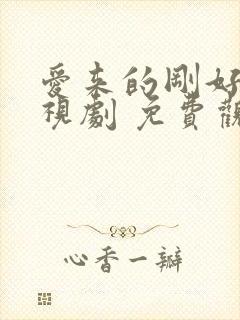 愛来的剛好
視劇 免費觀
心香一瓣